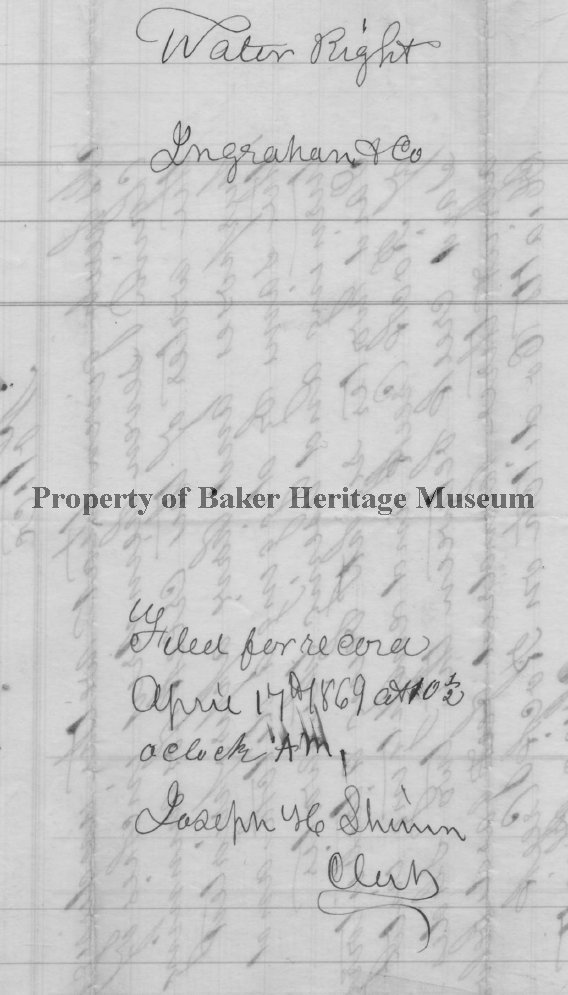 Water Right
Ingrahan & Co
Property of Baker Heritage Museum
Filed for record
April 17th 1869 at 10 1/2
oclock AM,
Joseph H Shinn
Clerk